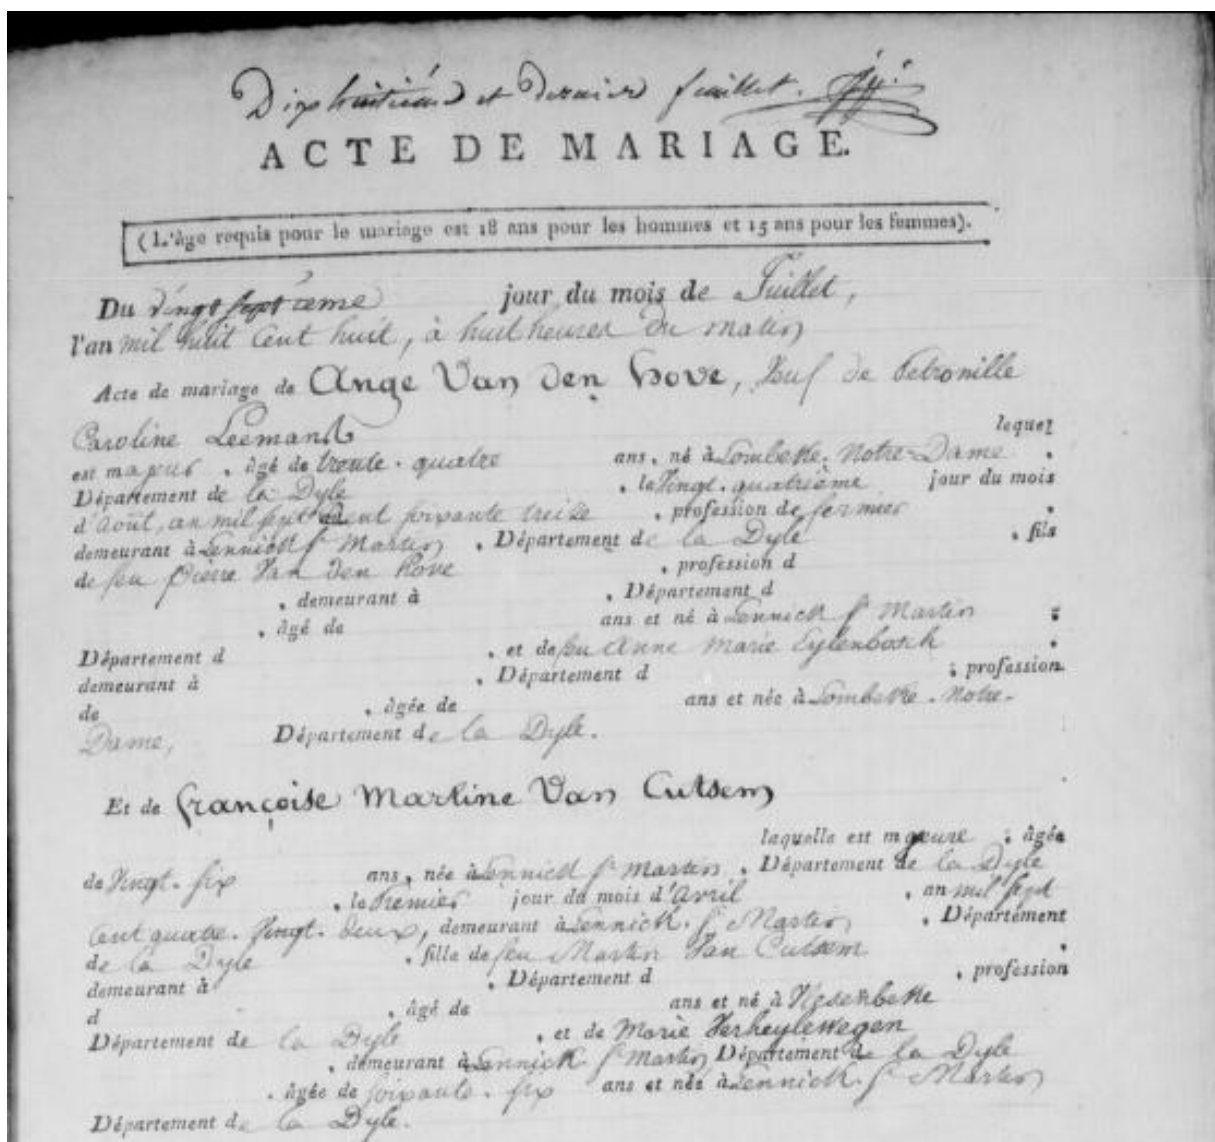 Dixhuitième et dernier feuillet.
ACTE DE MARIAGE.
(L'âge requis pour le mariage est 18 ans pour les hommes et 15 ans pour les femmes).
Du vingt septieme jour du mois de Juillet,
l'an mil huit cent huit, à huit heures du matin
Acte de mariage de Ange Van den hove, veuf de Petronille
Caroline Leemans lequel
est majeur, âgé de trente-quatre ans, né à Lombeke-Notre-Dame,
Département de la Dyle, le Vingt-quatrième jour du mois
d'Août, an mil sept cent soixante treize, profession de fermier,
demeurant à Lennick St Martin, Département de la Dyle, fils
de feu Pierre Van den hove, profession d
, demeurant à , Département d
, âgé de ans et né à Lennick St Martin ;
Département d , et de feu Anne Marie Eylenbosch,
demeurant à , Département d ; profession
de , âgée de ans et née à Lombeke-Notre-
Dame, Département de la Dyle.
Et de Françoise Martine Van Cutsem
laquelle est majeure ; âgée
de Vingt-six ans, née à Lennick St Martin, Département de la Dyle
, le Premier jour du mois d'Avril, an mil sept
cent quatre-Vingt-deux, demeurant à Lennick-St Martin, Département
de la Dyle, fille de feu Martin Van Cutsem,
demeurant à , Département d , profession
d , âgé de ans et né à
Département de la Dyle, et de Marie Verheylewegen
, demeurant à Lennick St Martin, Département de la Dyle
, âgée de soixante-six ans et née à Lennick-St Martin
Département de la Dyle.